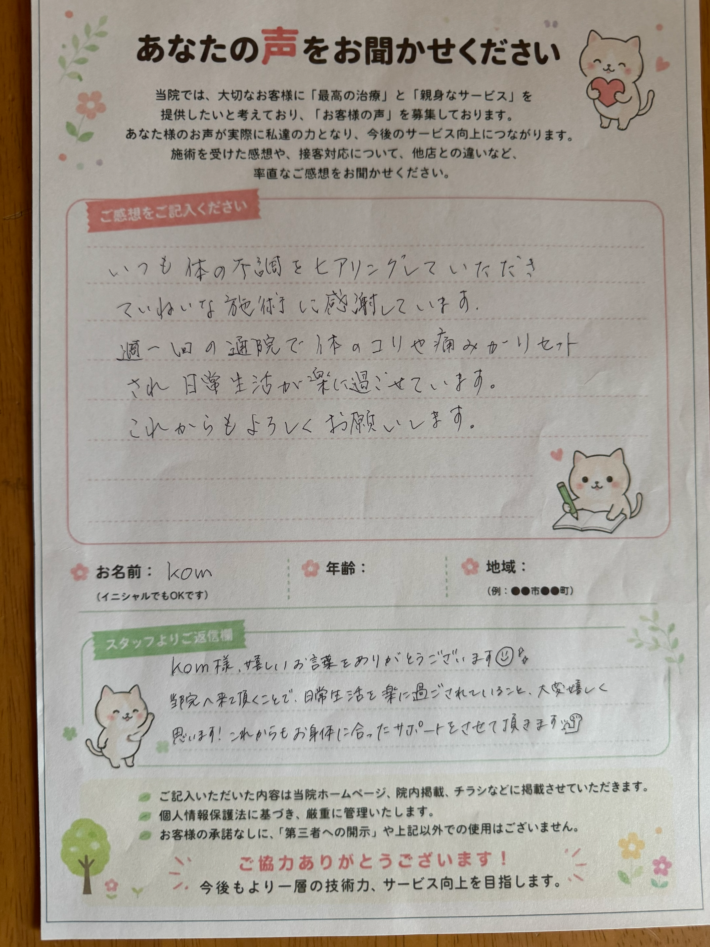 あなたの声をお聞かせください
当院では、大切なお客様に「最高の治療」と「親身なサービス」を
提供したいと考えており、「お客様の声」を募集しております。
あなた様のお声が実際に私達の力となり、今後のサービス向上につながります。
施術を受けた感想や、接客対応について、他店との違いなど、
率直なご感想をお聞かせください。
ご感想をご記入ください
いつも体の不調をヒアリングしていただき
ていねいな施術に感謝しています.
週一回の通院で体のコリや痛みがリセット
され日常生活が楽に過ごせています。
これからもよろしくお願いします。
お名前： kom
（イニシャルでもOKです）
年齢：
地域：
（例：●●市●●町）
スタッフよりご返信欄
kom様、嬉しいお言葉をありがとうございます
当院へ来て頂くことで、日常生活を楽に過ごされていること、大変嬉しく
思います！これからもお身体に合ったサポートをさせて頂きます
ご記入いただいた内容は当院ホームページ、院内掲載、チラシなどに掲載させていただきます。
個人情報保護法に基づき、厳重に管理いたします。
お客様の承諾なしに、「第三者への開示」や上記以外での使用はございません。
ご協力ありがとうございます！
今後もより一層の技術力、サービス向上を目指します。